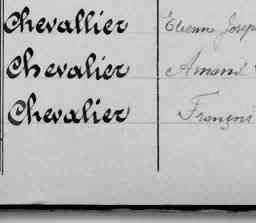 Chevallier Etienne Josep
Chevalier Amand
Chevalier François